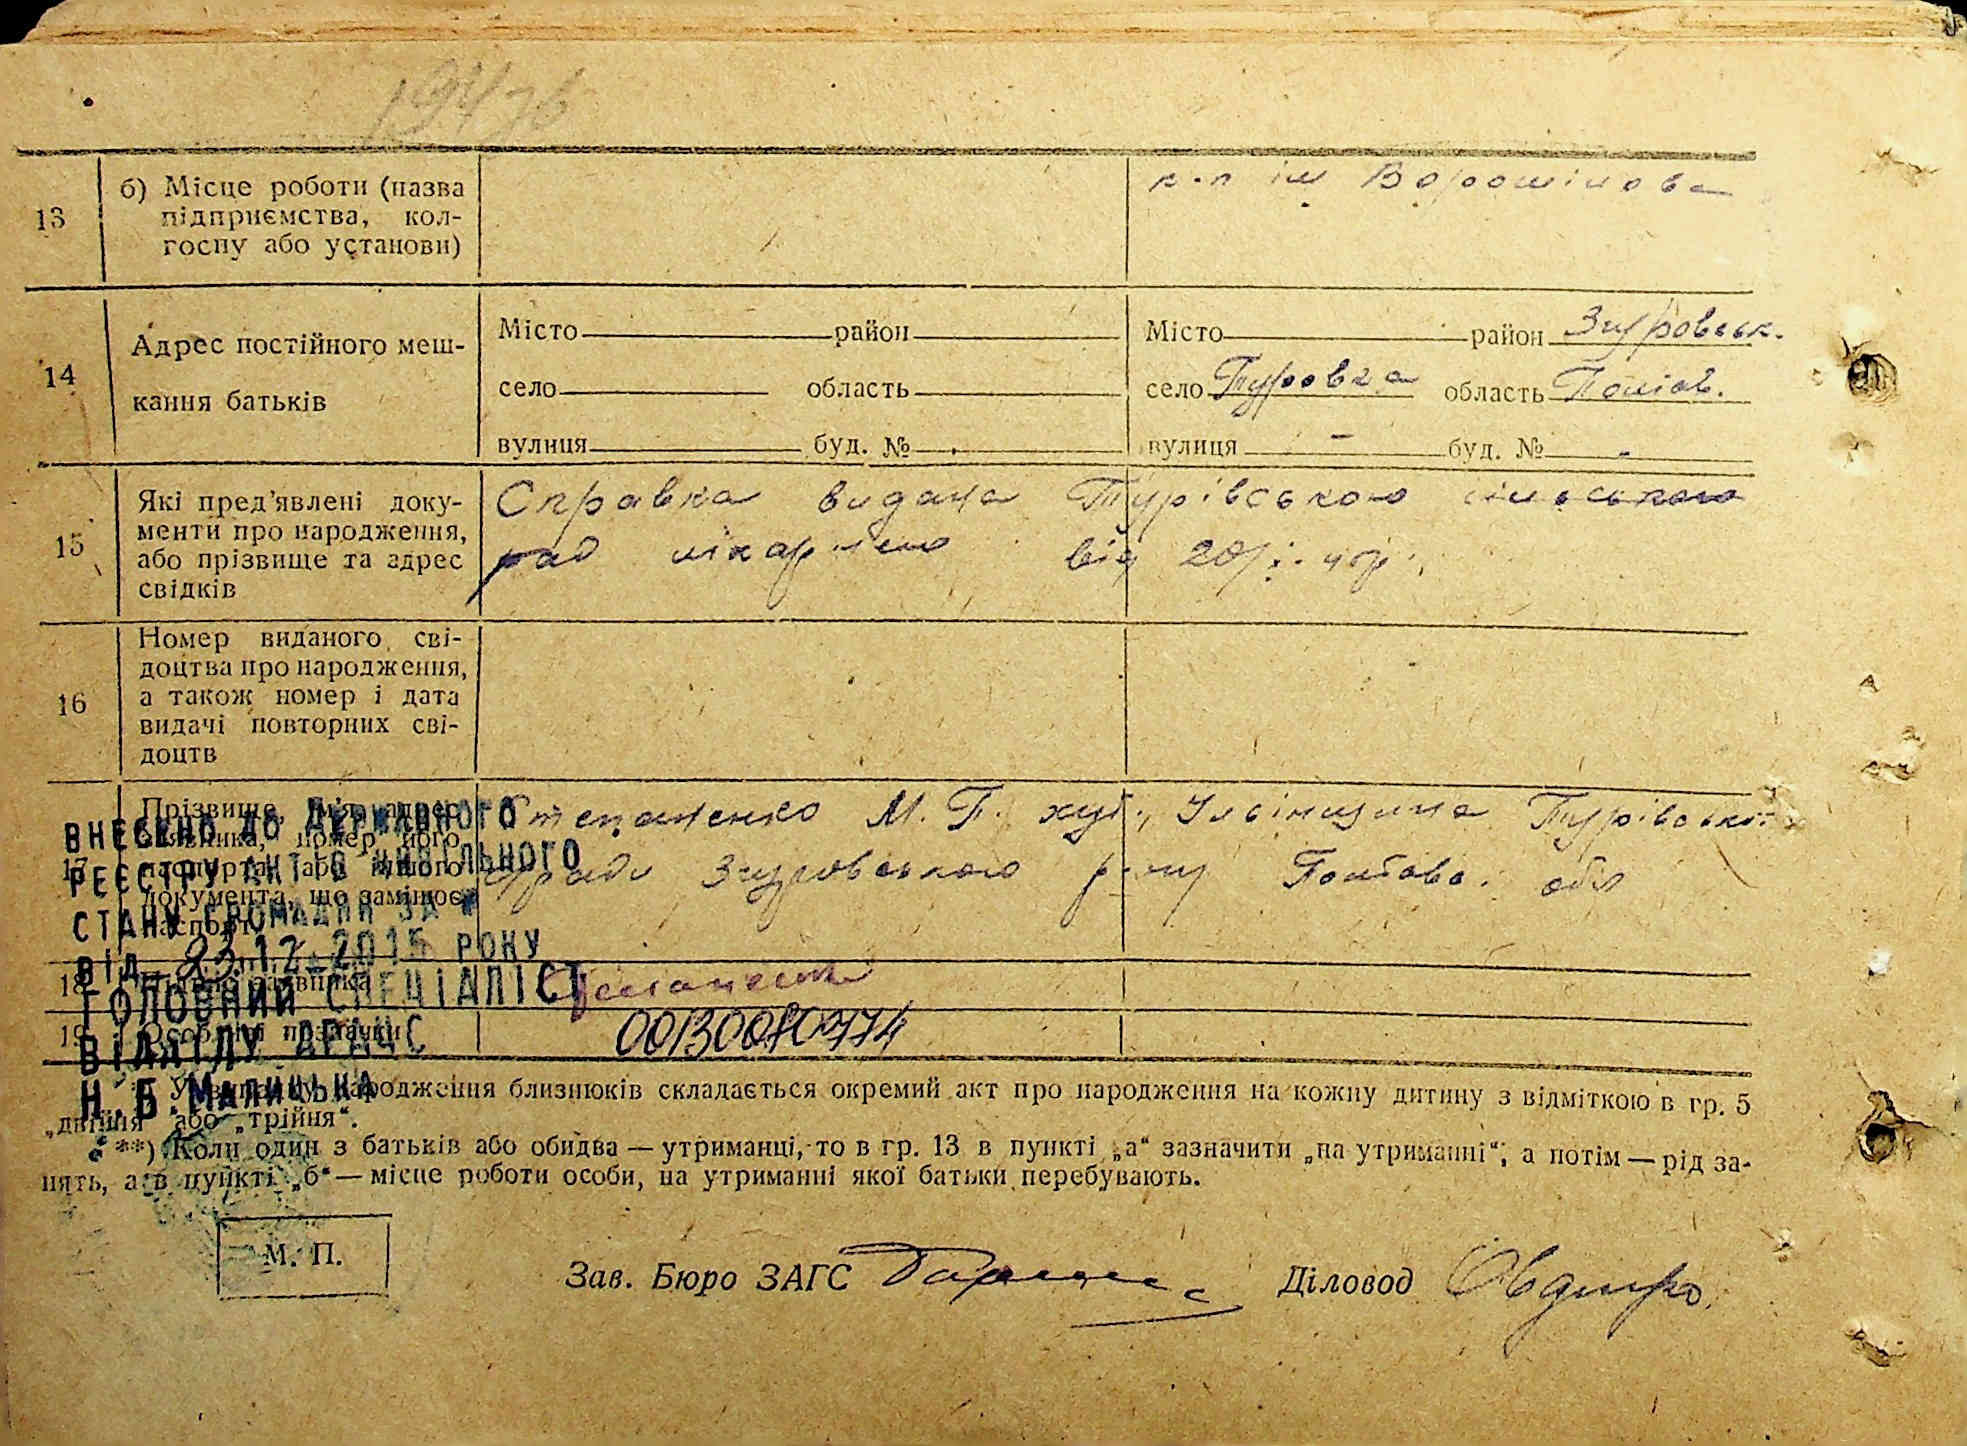 13 б) Місце роботи (назва
підприємства, кол-
госпу або установи)
к-п ім Ворошилова
14 Адрес постійного меш-
кання батьків
Місто район
село область
вулиця буд. №
Місто район Згуровськ.
село Турівка область Полтав.
вулиця - буд. № -
15 Які пред'явлені доку-
менти про народження,
або прізвище та адрес
свідків
Справка видана Турівською сільською
рад лікарнею від
16 Номер виданого сві-
доцтва про народження,
а також номер і дата
видачі повторних сві-
доцтв
17 Прізвище, ім'я, адрес
заявника, номер його
паспорта, або іншого
документа, що замінює
паспорт
Степаненко М. П. хут. Турівської
ради Згуровського р-ну Полтавс. обл
18 Підпис заявника
19 Особливі позначки
00130080774
ВНЕСЕНО ДО ДЕРЖАВНОГО
РЕЄСТРУ АКТІВ ЦИВІЛЬНОГО
СТАНУ ГРОМАДЯН ЗА №
ВІД 23.12.2015 РОКУ
ГОЛОВНИЙ СПЕЦІАЛІСТ
ВІДДІЛУ ДРАЦС
Н.Б.МАЛИЦЬКА
У випадку народження близнюків складається окремий акт про народження на кожну дитину з відміткою в гр. 5
„двійня" або „трійня".
**) Коли один з батьків або обидва — утриманці, то в гр. 13 в пункті „а" зазначити „на утриманні", а потім — рід за-
нять, а в пункті „б" — місце роботи особи, на утриманні якої батьки перебувають.
М. П.
Зав. Бюро ЗАГС Діловод